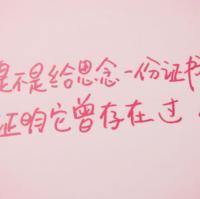 是不是给思念一份证书
证明它曾存在过